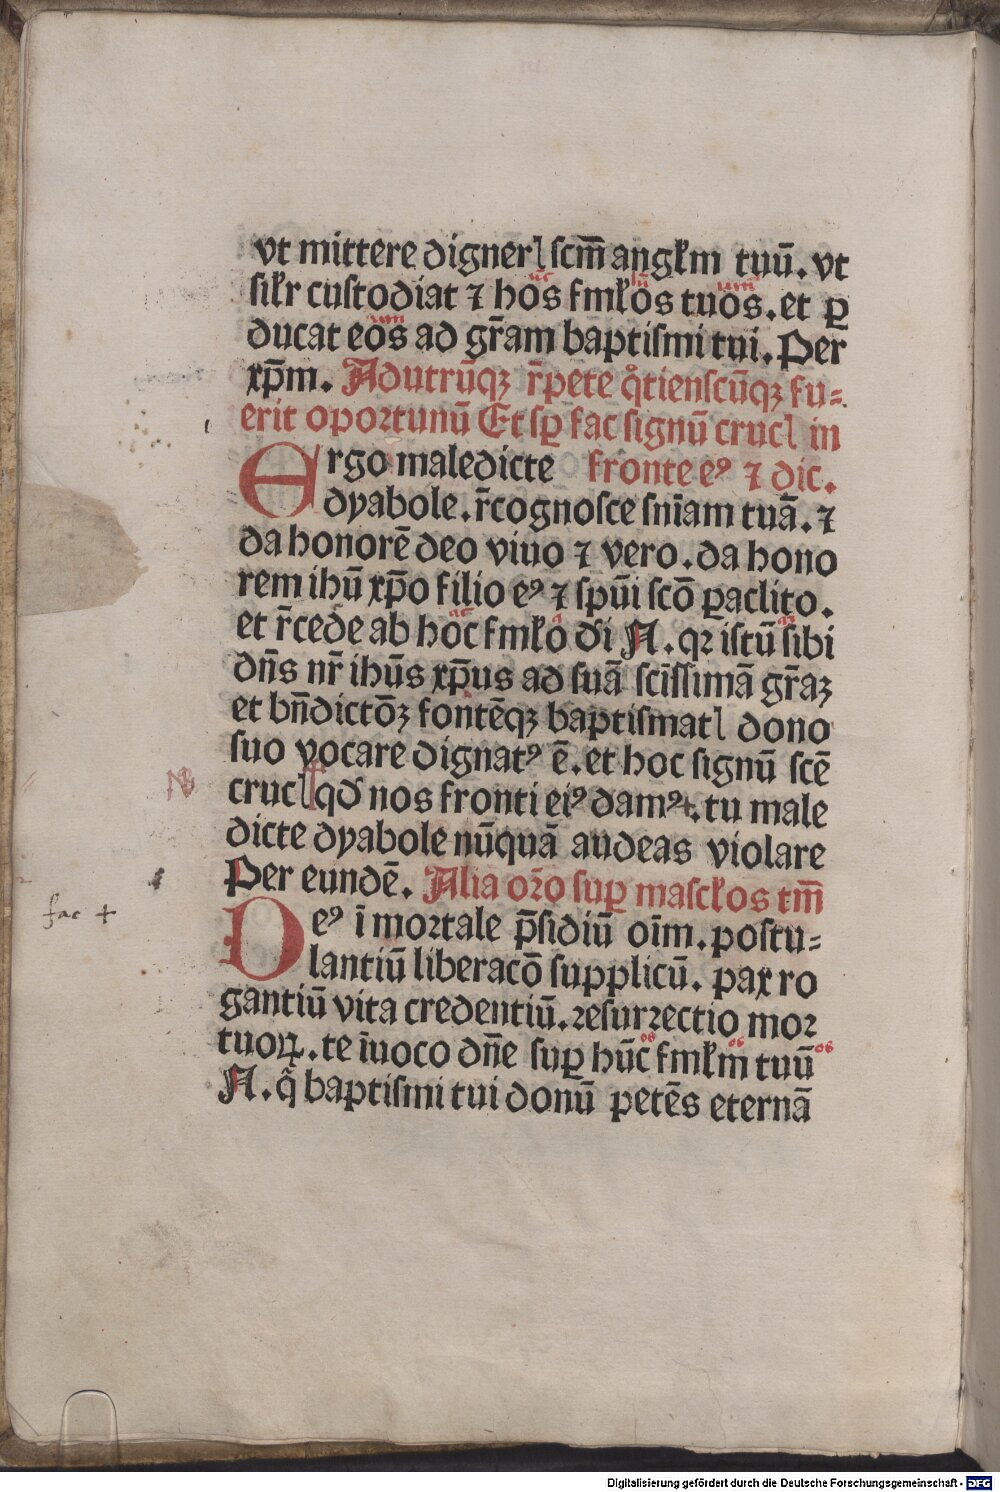 vt mittere dignerꝭ scm̄ angłm tuū. vt
ūc ū um̄
siłr custodiat ⁊ hos fmłos tuos. et ꝑ
um
ducat eos ad gr̄am baptismi tui. Per
xp̄m. Adutrūqꝫ r̄pete q̊tienscūqꝫ fu⸗
erit oportunū Et sꝑ fac signū crucꝭ in
Ergo maledicte fronte eꝰ ⁊ dic.
dyabole. r̄cognosce sn̄iam tuā. ⁊
da honorē deo viuo ⁊ vero. da hono
rem ihū xp̄o filio eꝰ ⁊ spūi scō ꝑaclito.
ac a
et r̄cede ab hoc fmło dī N. qꝛ istū sibi
dn̄s nr̄ ihūs xp̄us ad suā scīssimā gr̄aꝫ
et bn̄dictōꝫ fontēqꝫ baptismatꝭ dono
suo vocare dignatꝰ ē. et hoc signū scē
crucꝭ qď nos fronti eiꝰ damꝰ ✝. tu male
dicte dyabole nūquā audeas violare
Per eundē. Alia oꝛ̄o suꝑ mascłos tm̄
fac +
Deꝰ īmoꝛtale p̄sidiū oīm. postu⸗
lantiū liberacō supplicū. pax ro
gantiū vita credentiū. ꝛesurꝛectio moꝛ
os os os
tuoꝝ. te īuoco dn̄e suꝑ hūc fmłm tuū
N. q̄ baptismi tui donū petēs eternā
Digitalisierung gefördert durch die Deutsche Forschungsgemeinschaft - DFG